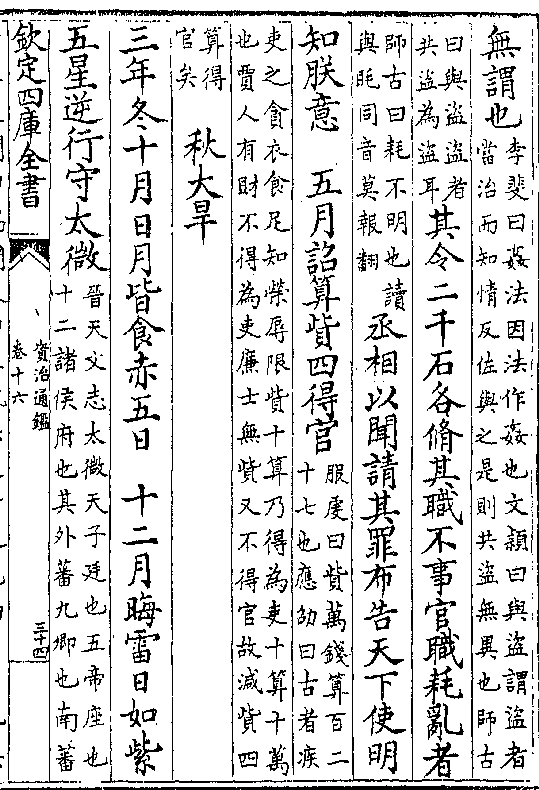 無謂也
李斐曰姦法因法作姦也文穎曰與盜謂盜者
當治而知情反佐與之是則共盜無異也師古
曰與盜盜者
共盜為盜耳
其令二千石各脩其職不事官職耗亂者
師古曰耗不明也讀
與眊同音莫報翻
丞相以聞請其罪布告天下使明
知朕意　五月詔算貲四得官
服虔曰貲萬錢算百二
十七也應劭曰古者疾
吏之貪衣食足知榮辱限貲十算乃得為吏十算十萬
也賈人有財不得為吏廉士無貲又不得官故減貲四
算得
官矣
秋大旱
三年冬十月日月皆食赤五日　十二月晦雷日如紫
五星逆行守太微
晉天文志太微天子廷也五帝座也
十二諸侯府也其外蕃九卿也南蕃
欽定四庫全書
資治通鑑
卷十六
三十四